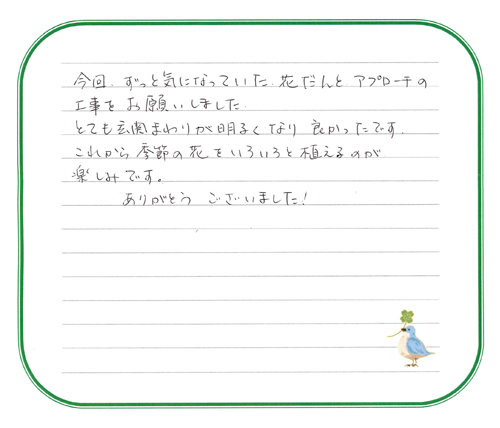 今回、ずっと気になっていた、花だんと アプローチの
工事を お願いしました。
とても玄関まわりが明るくなり 良かったです。
これから 季節の花を いろいろと 植えるのが
楽しみです。
ありがとう ございました!